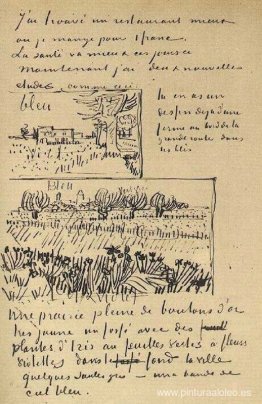 J'ai trouvé un restaurant mieux
ou je mange pour 1 franc.
La santé va mieux ces jours ci
Maintenant j'ai deux nouvelles
etudes comme ceci
bleu
Tu en as un
dessin deja d'une
ferme au bord de la
grande route dans
les blés
Bleu
Une prairie pleine de boutons d'or
tres jaune un fossé avec des
plantes d'Iris au feuilles vertes à fleurs
violettes dans le fond la ville
quelques saules gris – une bande de
ciel bleu.
www.pinturaaloleo.es